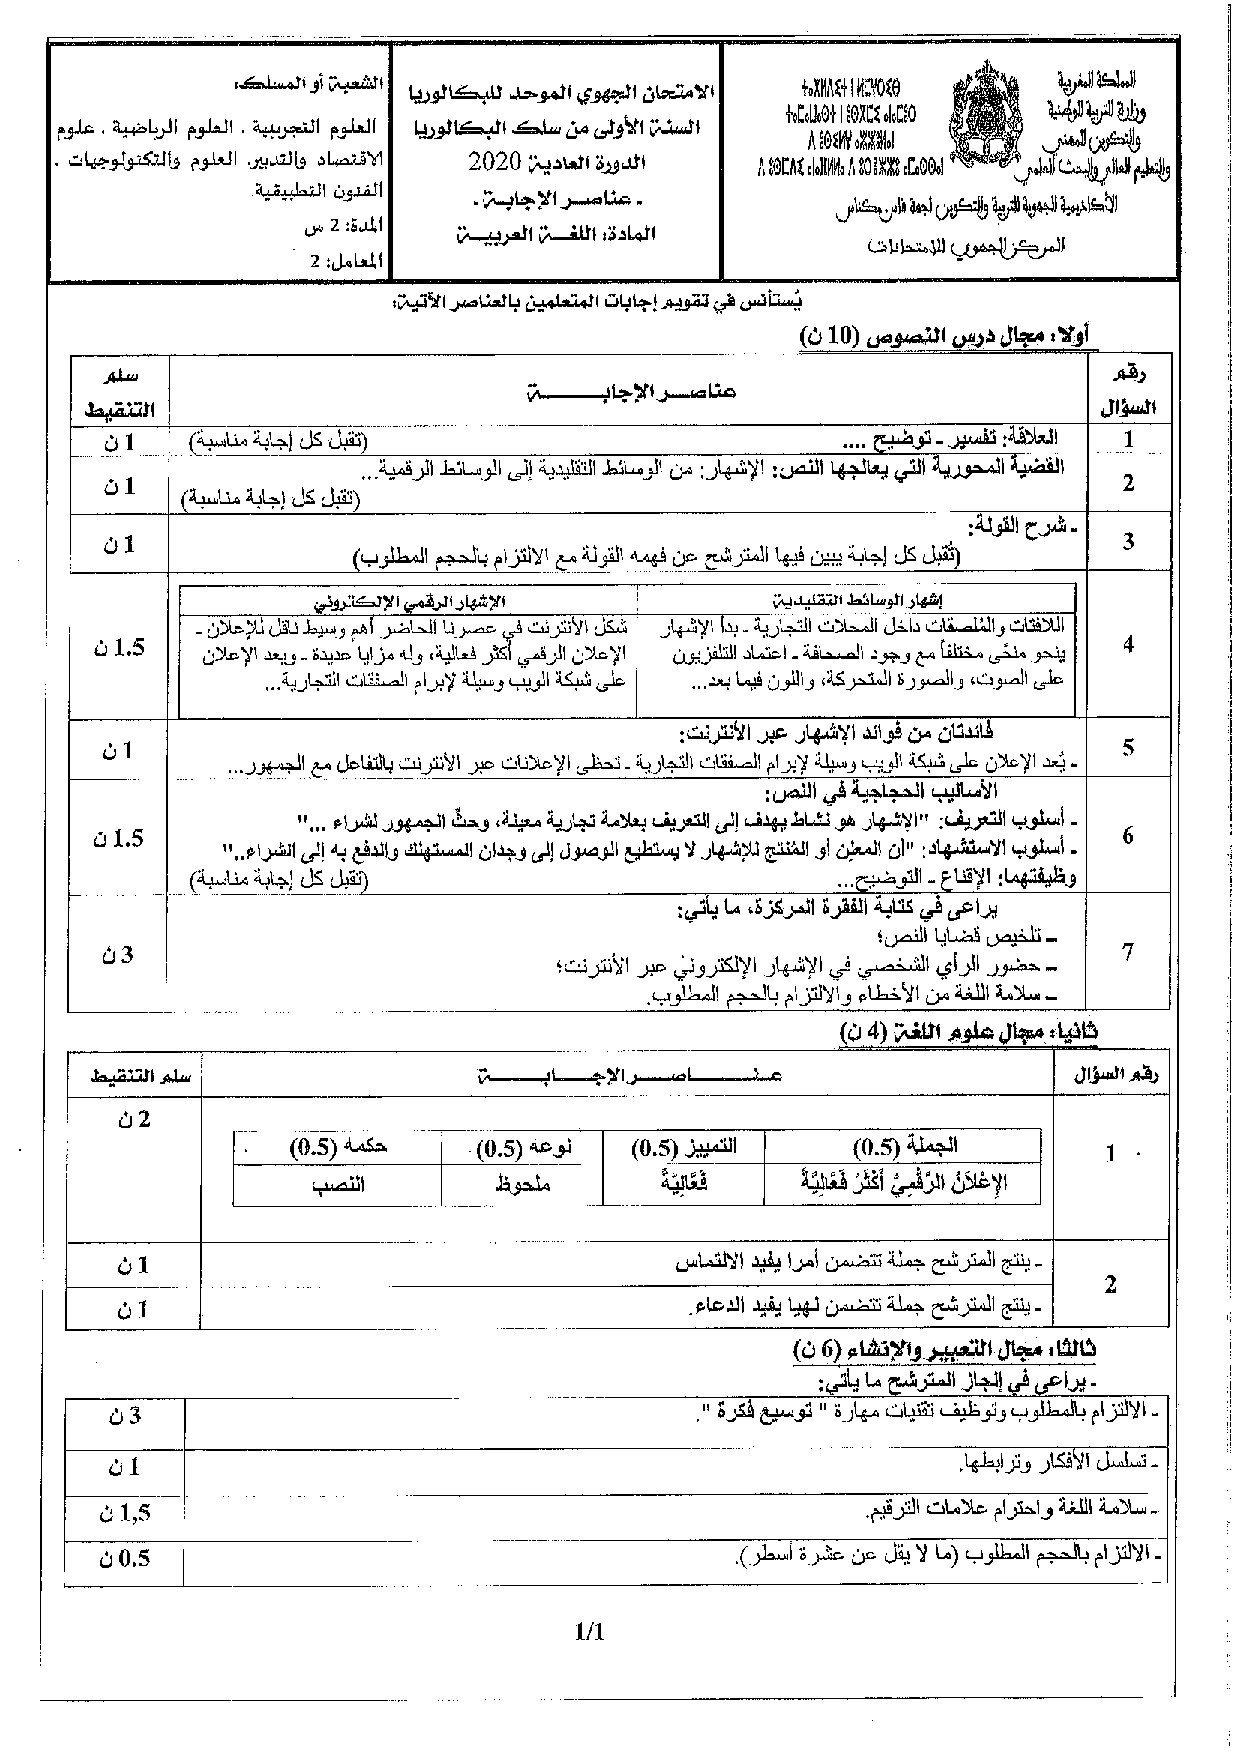 المملكة المغربية
وزارة التربية الوطنية
والتكوين المهني
والتعليم العالي والبحث العلمي
الأكاديمية الجهوية للتربية والتكوين لجهة فاس مكناس
المركز الجهوي للامتحانات
الامتحان الجهوي الموحد للبكالوريا
السنة الأولى من سلك البكالوريا
الدورة العادية: 2020
- عناصر الإجابة -
المادة: اللغة العربية
الشعبة أو المسلك:
العلوم التجريبية . العلوم الرياضية . علوم
الاقتصاد والتدبير. العلوم والتكنولوجيات .
الفنون التطبيقية.
المدة: 2 س
المعامل: 2
يُستأنس في تقويم إجابات المتعلمين بالعناصر الآتية:
أولا: مجال درس النصوص (10 ن)
رقم السؤال | عناصر الإجابة | سلم التنقيط
1 | العلاقة: تفسير - توضيح .... (تقبل كل إجابة مناسبة) | 1 ن
2 | القضية المحورية التي يعالجها النص: الإشهار: من الوسائط التقليدية إلى الوسائط الرقمية... | 1 ن
(تقبل كل إجابة مناسبة)
3 | - شرح القولة: | 1 ن
(تُقبل كل إجابة يبين فيها المترشح عن فهمه القولة مع الالتزام بالحجم المطلوب)
إشهار الوسائط التقليدية | الإشهار الرقمي الإلكتروني
اللافتات والمُلصقات داخل المحلات التجارية - بدأ الإشهار | شكل الأنترنت في عصرنا الحاضر أهم وسيط ناقل للإعلان -
4 | ينحو منحًى مختلفاً مع وجود الصحافة - اعتماد التلفزيون | الإعلان الرقمي أكثر فعالية، وله مزايا عديدة - ويعد الإعلان | 1.5 ن
على الصوت، والصورة المتحركة، واللون فيما بعد... | على شبكة الويب وسيلة لإبرام الصفقات التجارية...
فائدتان من فوائد الإشهار عبر الأنترنت:
5 | - يُعد الإعلان على شبكة الويب وسيلة لإبرام الصفقات التجارية - تحظى الإعلانات عبر الأنترنت بالتفاعل مع الجمهور... | 1 ن
الأساليب الحجاجية في النص:
- أسلوب التعريف: "الإشهار هو نشاط يهدف إلى التعريف بعلامة تجارية معينة، وحثِّ الجمهور لشراء ..."
6 | - أسلوب الاستشهاد: "أن المعلن أو المُنتج للإشهار لا يستطيع الوصول إلى وجدان المستهلك والدفع به إلى الشراء.." | 1.5 ن
وظيفتهما: الإقناع - التوضيح... (تقبل كل إجابة مناسبة)
يراعى في كتابة الفقرة المركزة، ما يأتي:
– تلخيص قضايا النص؛
7 | – حضور الرأي الشخصي في الإشهار الإلكتروني عبر الأنترنت؛ | 3 ن
– سلامة اللغة من الأخطاء والالتزام بالحجم المطلوب.
ثانيا: مجال علوم اللغة (4 ن)
رقم السؤال | عناصر الإجابة | سلم التنقيط
2 ن
1 | الجملة (0.5) | التمييز (0.5) | نوعه (0.5) | حكمه (0.5)
الإِعْلَانُ الرَّقْمِيُّ أَكْثَرُ فَعَّالِيَّةً | فَعَّالِيَّةً | ملحوظ | النصب
- ينتج المترشح جملة تتضمن أمرا يفيد الالتماس | 1 ن
2
- ينتج المترشح جملة تتضمن نهيا يفيد الدعاء. | 1 ن
ثالثا: مجال التعبير والإنشاء (6 ن)
- يراعى في إنجاز المترشح ما يأتي:
- الالتزام بالمطلوب وتوظيف تقنيات مهارة " توسيع فكرة ". | 3 ن
- تسلسل الأفكار وترابطها. | 1 ن
- سلامة اللغة واحترام علامات الترقيم. | 1,5 ن
- الالتزام بالحجم المطلوب (ما لا يقل عن عشرة أسطر). | 0.5 ن
1/1